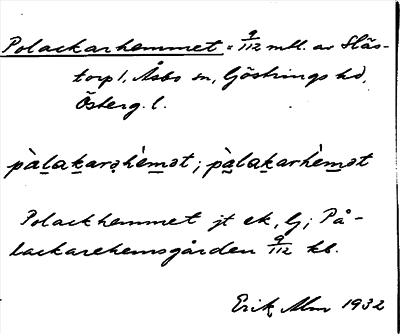 Polackarhemmet = 9/112 mtl. av Släs-
torp 1, Åsbo sn, Göstrings hd,
Österg. l.
pàlakarəhèmət; pàlakarhèmət
Polackhemmet jt ek, lj; På-
lackarehemsgården 9/112 kb.
Erik Alm 1932